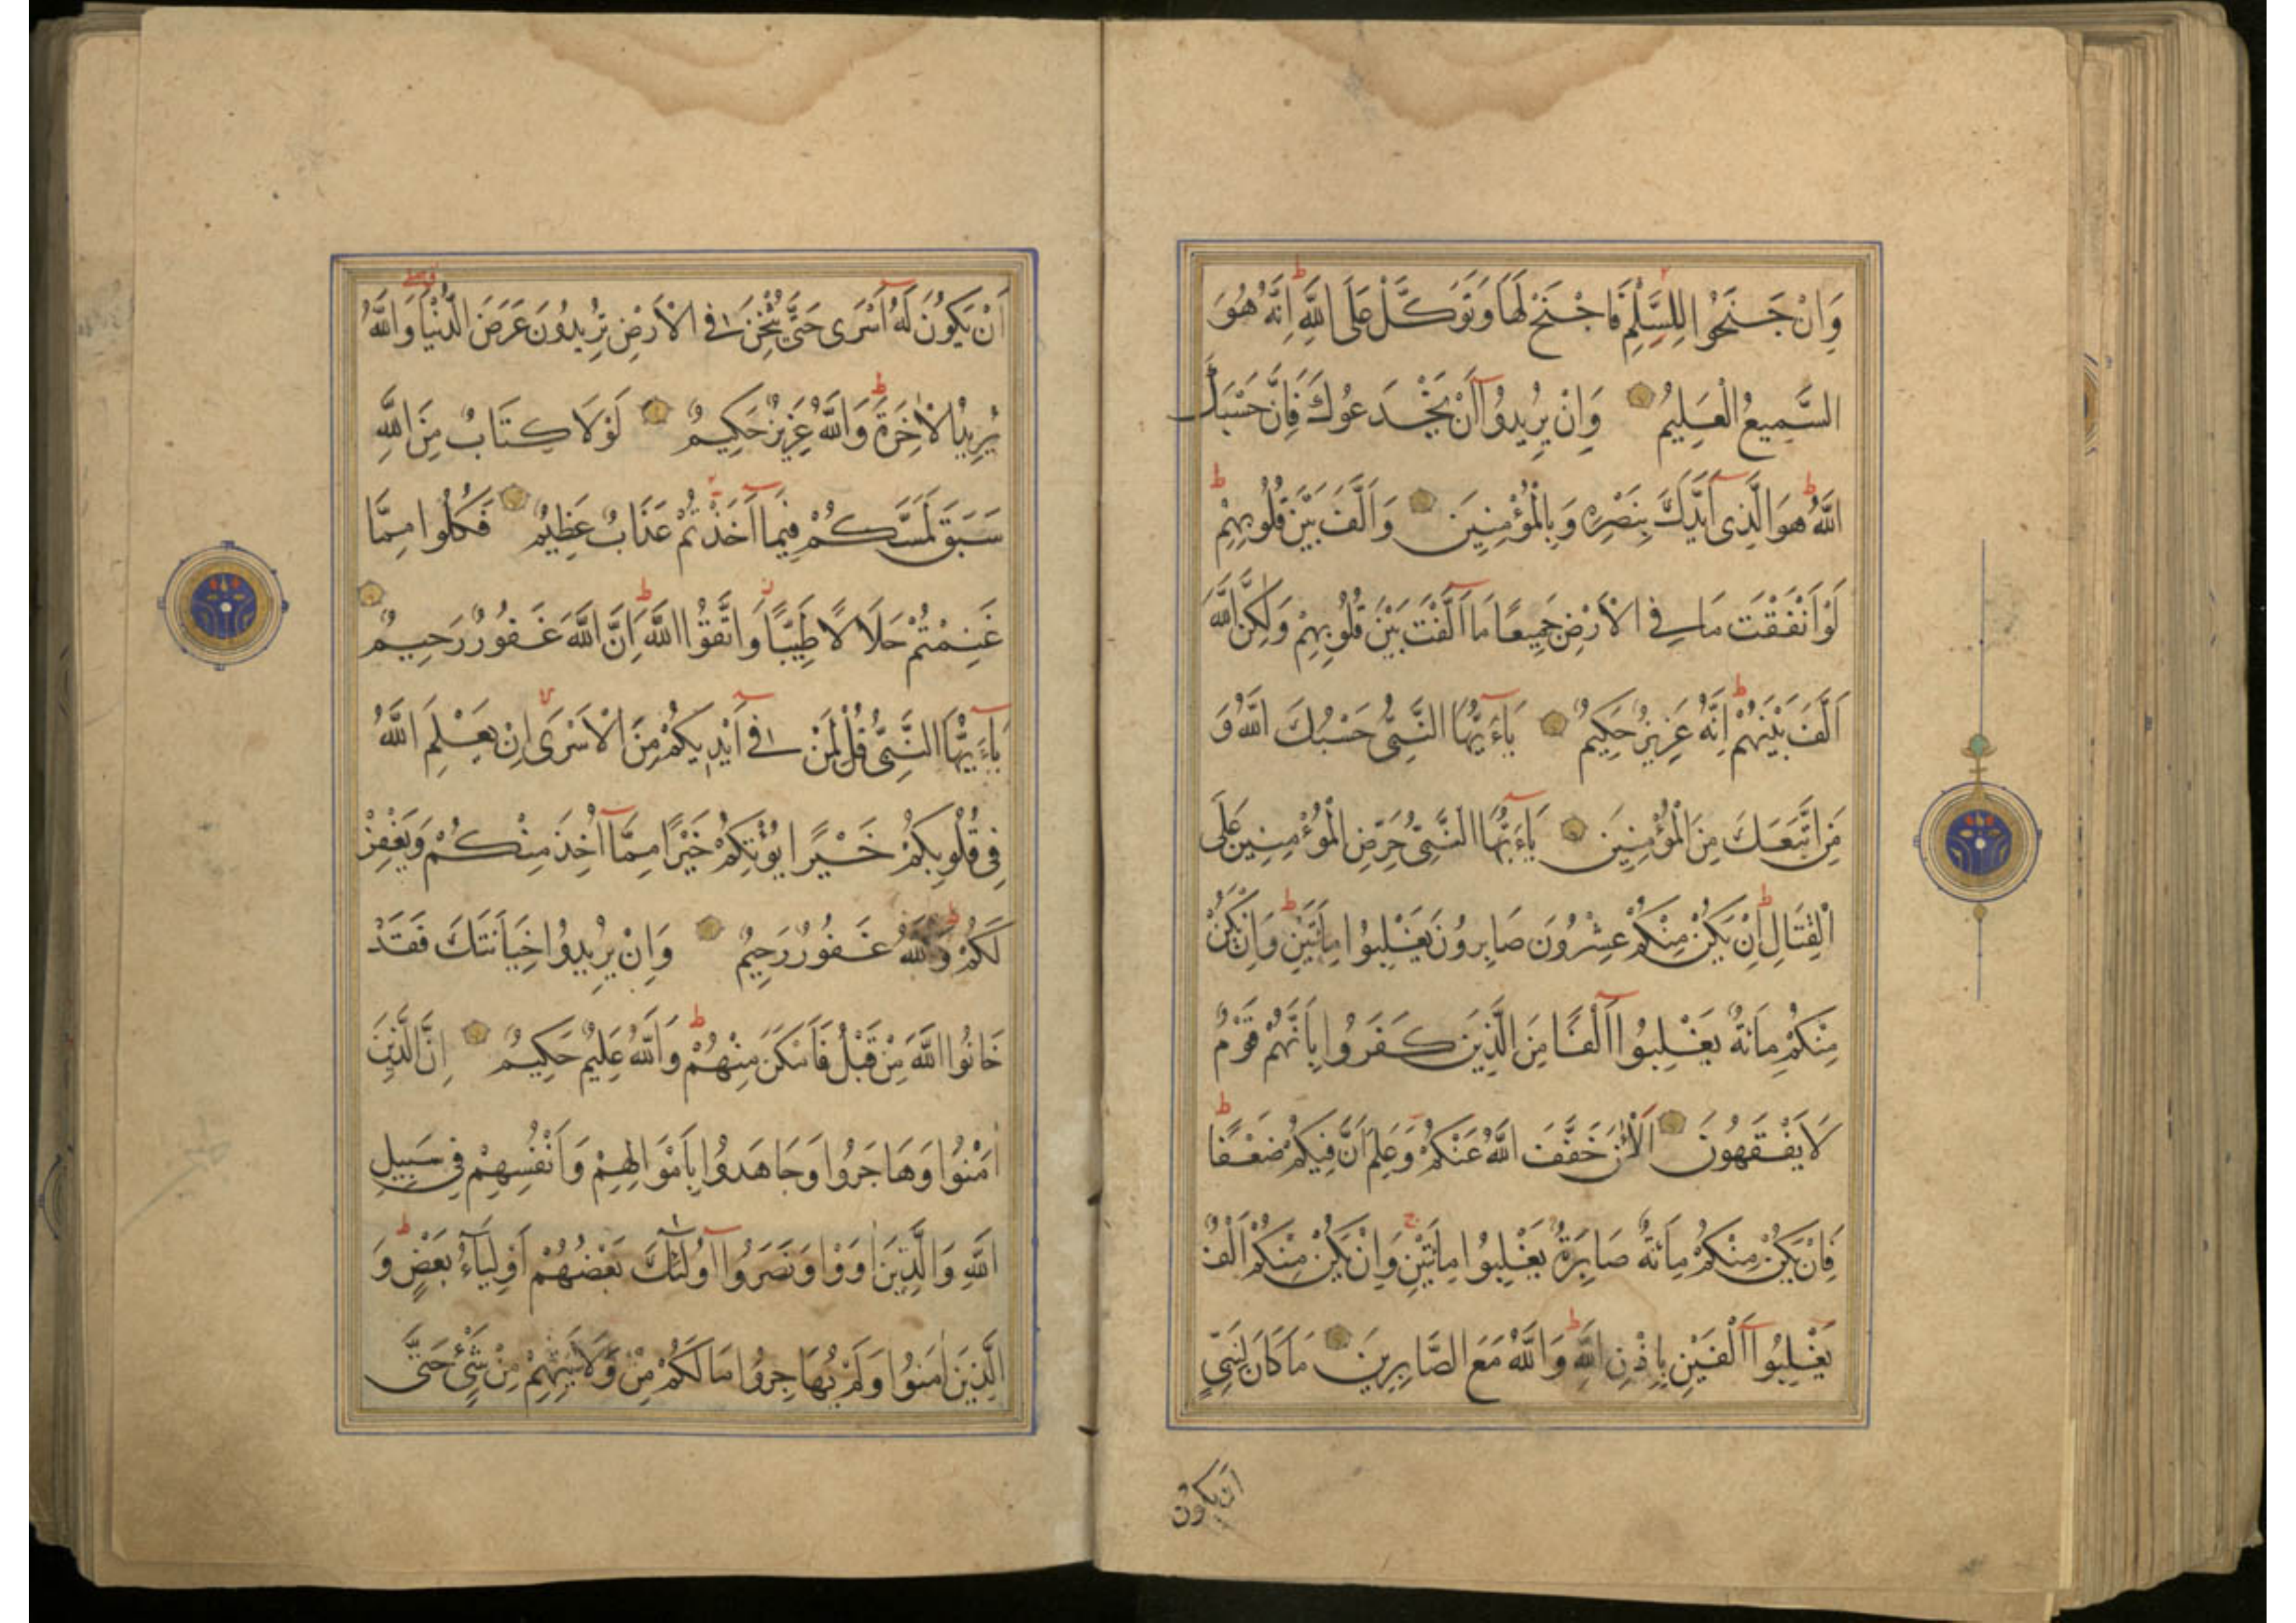 وَاِنْ جَنَحُوا لِلسَّلْمِ فَاجْنَحْ لَهَا وَتَوَكَّلْ عَلَى اللَّهِ اِنَّهُ هُوَ
السَّمِيعُ الْعَلِيمُ وَاِنْ يُرِيدُوا اَنْ يَخْدَعُوكَ فَاِنَّ حَسْبَكَ
اللَّهُ هُوَ الَّذِى اَيَّدَكَ بِنَصْرِهِ وَبِالْمُؤْمِنِينَ وَاَلَّفَ بَيْنَ قُلُوبِهِمْ
لَوْ اَنْفَقْتَ مَا فِى الْاَرْضِ جَمِيعًا مَا اَلَّفْتَ بَيْنَ قُلُوبِهِمْ وَلٰكِنَّ اللَّهَ
اَلَّفَ بَيْنَهُمْ اِنَّهُ عَزِيزٌ حَكِيمٌ يَاءَيُّهَا النَّبِىُّ حَسْبُكَ اللَّهُ وَ
مَنِ اتَّبَعَكَ مِنَ الْمُؤْمِنِينَ يَاءَيُّهَا النَّبِىُّ حَرِّضِ الْمُؤْمِنِينَ عَلَى
الْقِتَالِ اِنْ يَكُنْ مِنْكُمْ عِشْرُونَ صَابِرُونَ يَغْلِبُوا مِائَتَيْنِ وَاِنْ يَكُنْ
مِنْكُمْ مِائَةٌ يَغْلِبُوا اَلْفًا مِنَ الَّذِينَ كَفَرُوا بِاَنَّهُمْ قَوْمٌ
لَا يَفْقَهُونَ اَلْاٰنَ خَفَّفَ اللَّهُ عَنْكُمْ وَعَلِمَ اَنَّ فِيكُمْ ضَعْفًا
فَاِنْ يَكُنْ مِنْكُمْ مِائَةٌ صَابِرَةٌ يَغْلِبُوا مِائَتَيْنِ وَاِنْ يَكُنْ مِنْكُمْ اَلْفٌ
يَغْلِبُوا اَلْفَيْنِ بِاِذْنِ اللَّهِ وَاللَّهُ مَعَ الصَّابِرِينَ مَا كَانَ لِنَبِىٍّ
ان يكون
اَنْ يَكُونَ لَهُ اَسْرَى حَتَّى يُثْخِنَ فِى الْاَرْضِ تُرِيدُونَ عَرَضَ الدُّنْيَا وَاللَّهُ
يُرِيدُ الْاٰخِرَةَ وَاللَّهُ عَزِيزٌ حَكِيمٌ لَوْلَا كِتَابٌ مِنَ اللَّهِ
سَبَقَ لَمَسَّكُمْ فِيمَا اَخَذْتُمْ عَذَابٌ عَظِيمٌ فَكُلُوا مِمَّا
غَنِمْتُمْ حَلَالًا طَيِّبًا وَاتَّقُوا اللَّهَ اِنَّ اللَّهَ غَفُورٌ رَحِيمٌ
يَاءَيُّهَا النَّبِىُّ قُلْ لِمَنْ فِى اَيْدِيكُمْ مِنَ الْاَسْرَى اِنْ يَعْلَمِ اللَّهُ
فِى قُلُوبِكُمْ خَيْرًا يُؤْتِكُمْ خَيْرًا مِمَّا اُخِذَ مِنْكُمْ وَيَغْفِرْ
لَكُمْ وَاللَّهُ غَفُورٌ رَحِيمٌ وَاِنْ يُرِيدُوا خِيَانَتَكَ فَقَدْ
خَانُوا اللَّهَ مِنْ قَبْلُ فَاَمْكَنَ مِنْهُمْ وَاللَّهُ عَلِيمٌ حَكِيمٌ اِنَّ الَّذِينَ
اٰمَنُوا وَهَاجَرُوا وَجَاهَدُوا بِاَمْوَالِهِمْ وَاَنْفُسِهِمْ فِى سَبِيلِ
اللَّهِ وَالَّذِينَ اٰوَوْا وَنَصَرُوا اُولٰئِكَ بَعْضُهُمْ اَوْلِيَاءُ بَعْضٍ وَ
الَّذِينَ اٰمَنُوا وَلَمْ يُهَاجِرُوا مَا لَكُمْ مِنْ وَلَايَتِهِمْ مِنْ شَىْءٍ حَتَّى